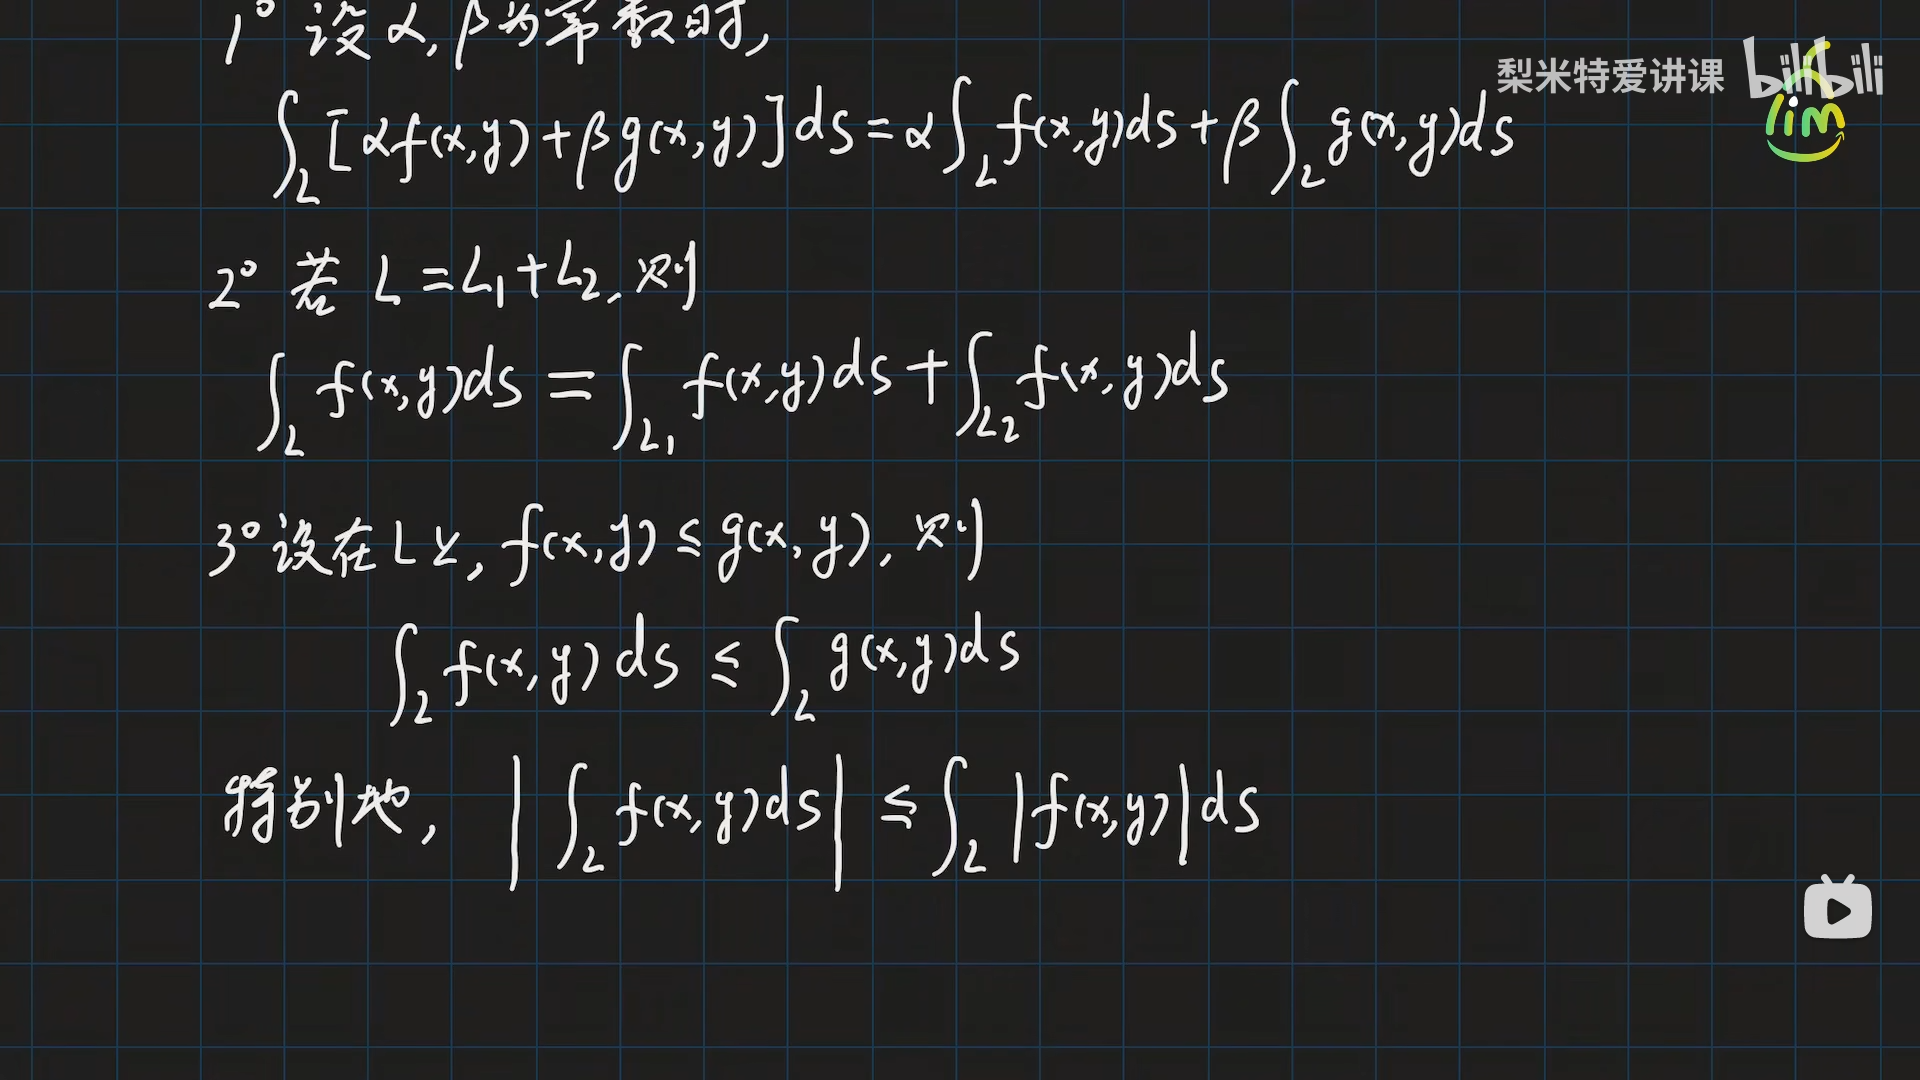 1° 设 α, β为常数时,
∫_L [αf(x,y)+βg(x,y)]ds=α∫_L f(x,y)ds+β∫_L g(x,y)ds
2° 若 L=L₁+L₂, 则
∫_L f(x,y)ds=∫_L₁ f(x,y)ds+∫_L₂ f(x,y)ds
3° 设在L上, f(x,y)≤g(x,y), 则
∫_L f(x,y)ds ≤ ∫_L g(x,y)ds
特别地, |∫_L f(x,y)ds| ≤ ∫_L |f(x,y)|ds
梨米特爱讲课 bilibili
lim